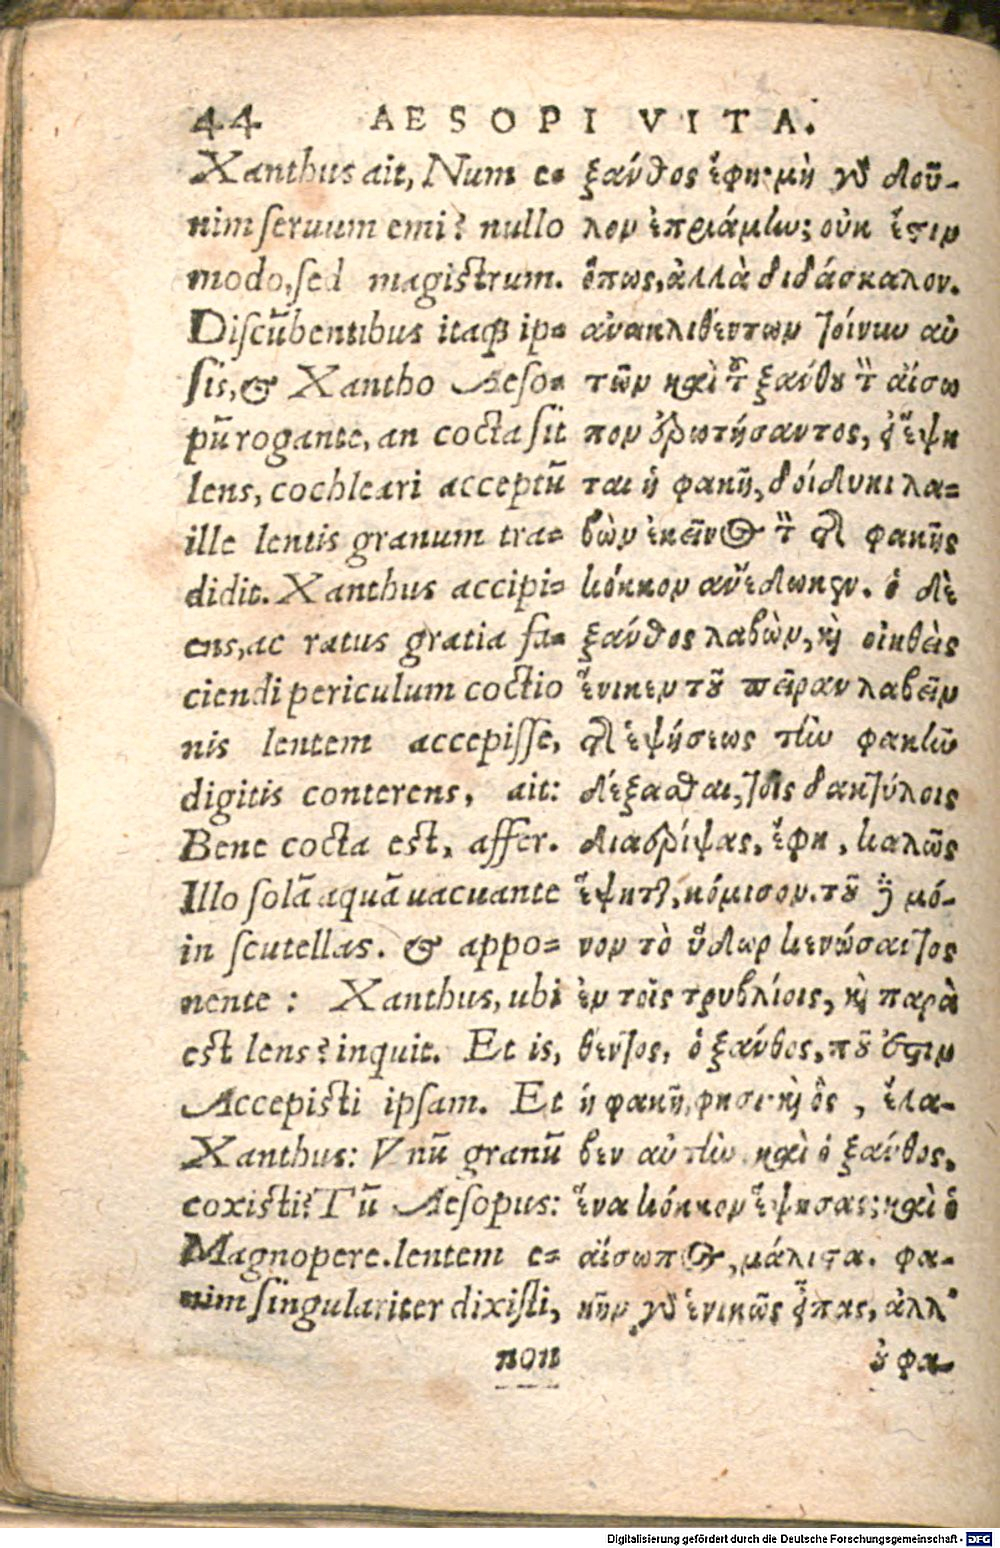 44 AESOPI VITA.
Xanthus ait, Num e-
nim seruum emi? nullo
modo, sed magistrum.
Discūbentibus itaq; ip-
sis, & Xantho Aeso-
pū rogante, an cocta sit
lens, cochleari acceptū
ille lentis granum tra-
didit. Xanthus accipi-
ens, ac ratus gratia fa-
ciendi periculum coctio
nis lentem accepisse,
digitis conterens, ait:
Bene cocta est, affer.
Illo solā aquā uacuante
in scutellas. & appo-
nente: Xanthus, ubi
est lens? inquit. Et is,
Accepisti ipsam. Et
Xanthus: Vnū granū
coxisti? Tū Aesopus:
Magnopere. lentem e-
nim singulariter dixisti,
non
ξάνθος ἔφη· μὴ γὰρ δοῦ-
λον ἐπριάμην; οὐκ ἔστιν
ὅπως, ἀλλὰ διδάσκαλον.
ἀνακλιθέντων τοίνυν αὐ
τῶν καὶ τοῦ ξάνθου τὸν αἴσω
πον ἐρωτήσαντος, εἰ ἕψη
ται ἡ φακῆ, δοίδυκι λα-
βὼν ἐκεῖνος τὸν τῆς φακῆς
κόκκον ἀνέδωκεν. ὁ δὲ
ξάνθος λαβὼν, καὶ οἰηθεὶς
ἕνεκεν τοῦ πεῖραν λαβεῖν
τῆς ἑψήσεως τὴν φακῆν
δέξασθαι, τοῖς δακτύλοις
διατρίψας, ἔφη, καλῶς
ἕψηται, κόμισον. τοῦ δὲ μό-
νον τὸ ὕδωρ κενώσαντος
ἐν τοῖς τρυβλίοις, καὶ παρα
θέντος, ὁ ξάνθος, ποῦ ἐστιν
ἡ φακῆ, φησι· καὶ ὃς, ἔλα-
βες αὐτὴν. καὶ ὁ ξάνθος,
ἕνα κόκκον ἕψησας; καὶ ὁ
αἴσωπος, μάλιστα. φα-
κῆν γὰρ ἑνικῶς εἶπας, ἀλλ'
οὐ φα-
Digitalisierung gefördert durch die Deutsche Forschungsgemeinschaft - DFG